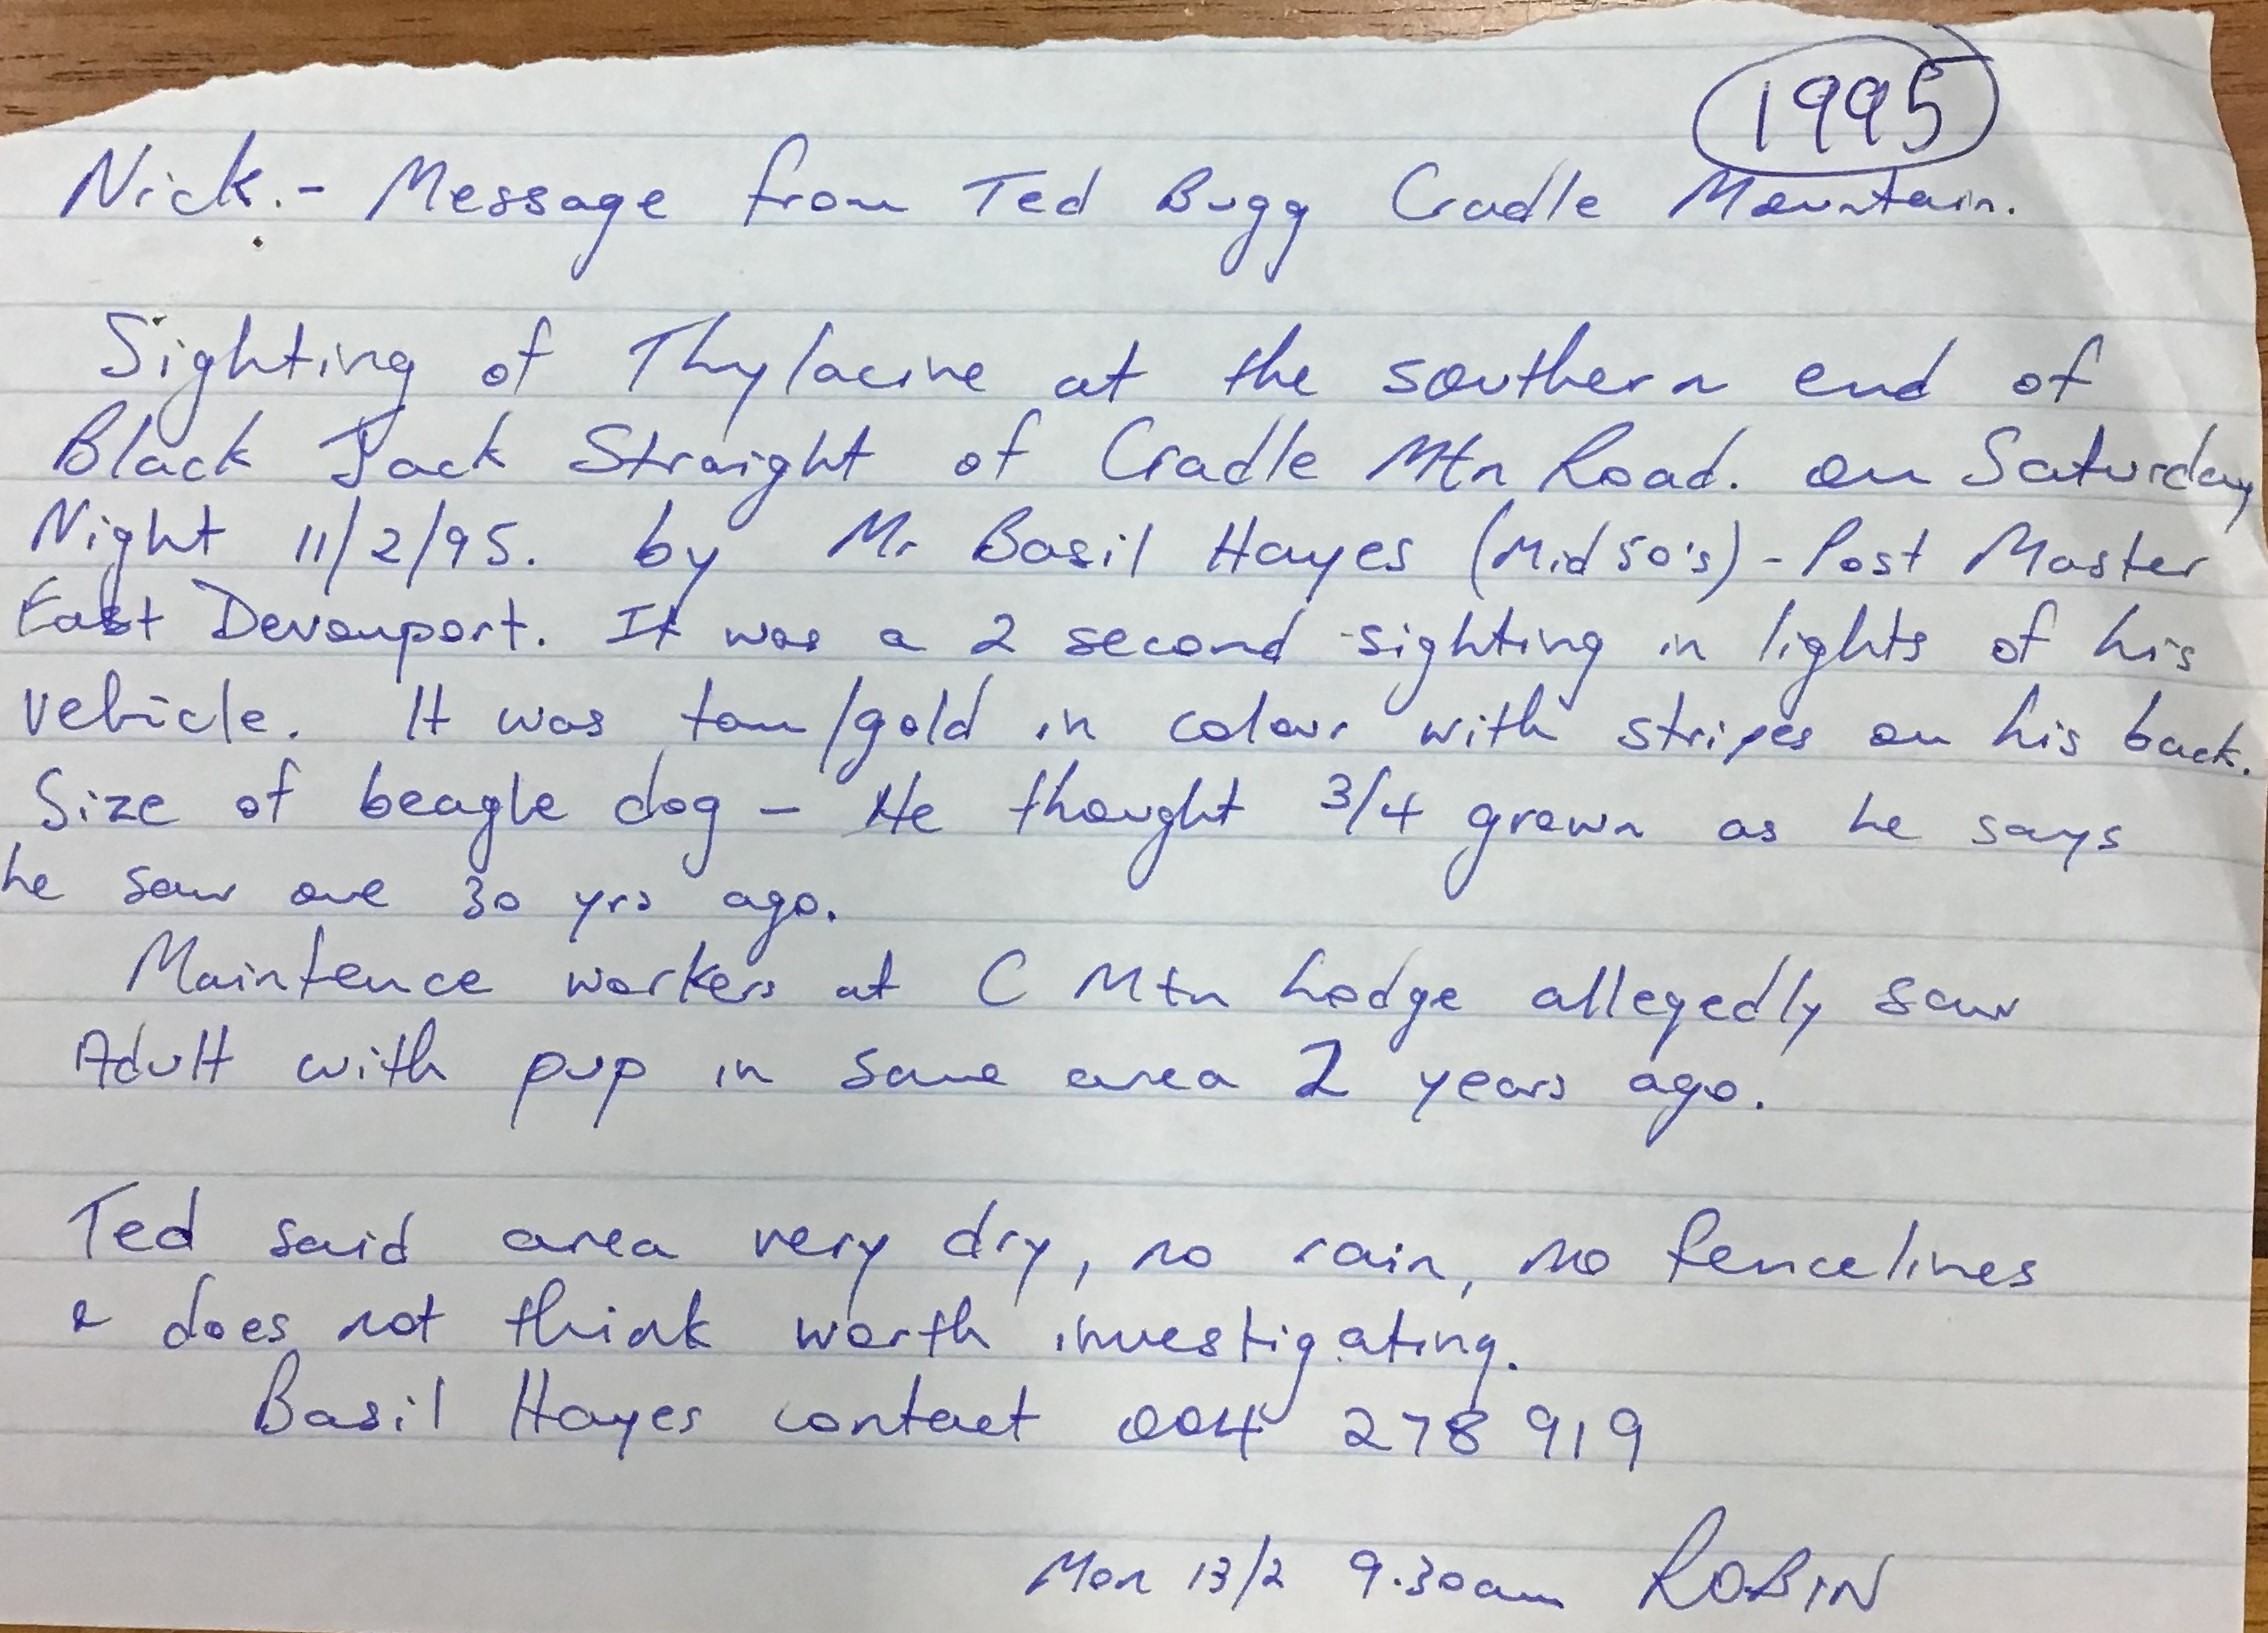 1995
Nick.- Message from Ted Bugg Cradle Mountain.
Sighting of Thylacine at the southern end of
Black Jack Straight of Cradle Mtn Road. on Saturday
Night 11/2/95. by Mr Basil Hayes (Mid 50's) - Post Master
East Devonport. It was a 2 second sighting in lights of his
vehicle. It was tan/gold in colour with stripes on his back.
Size of beagle dog - He thought 3/4 grown as he says
he saw one 30 yrs ago.
Maintence workers at C Mtn Lodge allegedly saw
Adult with pup in same area 2 years ago.
Ted said area very dry, no rain, no fencelines
& does not think worth investigating.
Basil Hayes contact 004 278 919
Mon 13/2 9.30am ROBIN